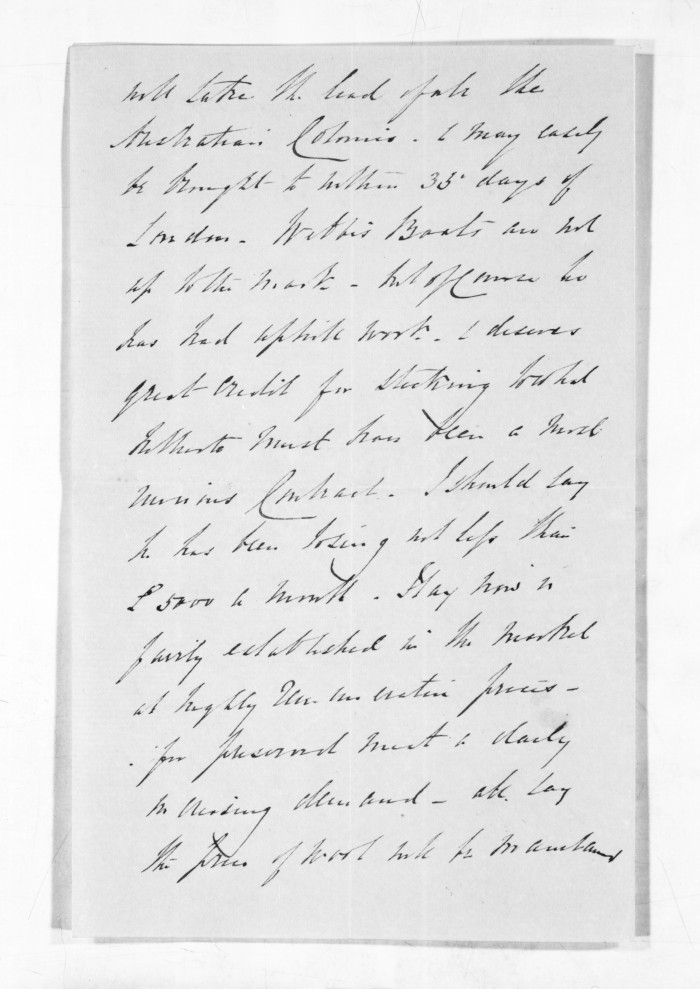 will take the lead of all the
Australian Colonies. & may easily
be brought to within 35 days of
London. Webbs Boats are not
up to the mark - but of Course he
has had uphill work. & deserves
great credit for sticking to what
hitherto must have been a most
Contract. I should say
he has been losing not less than
£5000 a month. Flax now is
fairly established in the market
at highly remunerative prices -
for preserved meat a daily
increasing demand - all say
the price of wool will be maintained